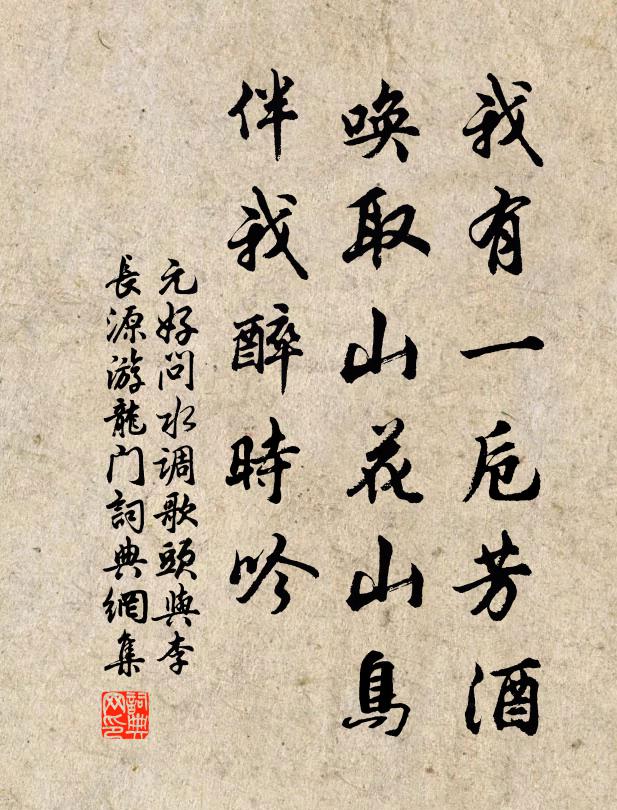 我有一卮芳酒
喚取山花山鳥
伴我醉時吟
元好问水调歌頭與李
長源游龍门詞典網集
詞典
网印